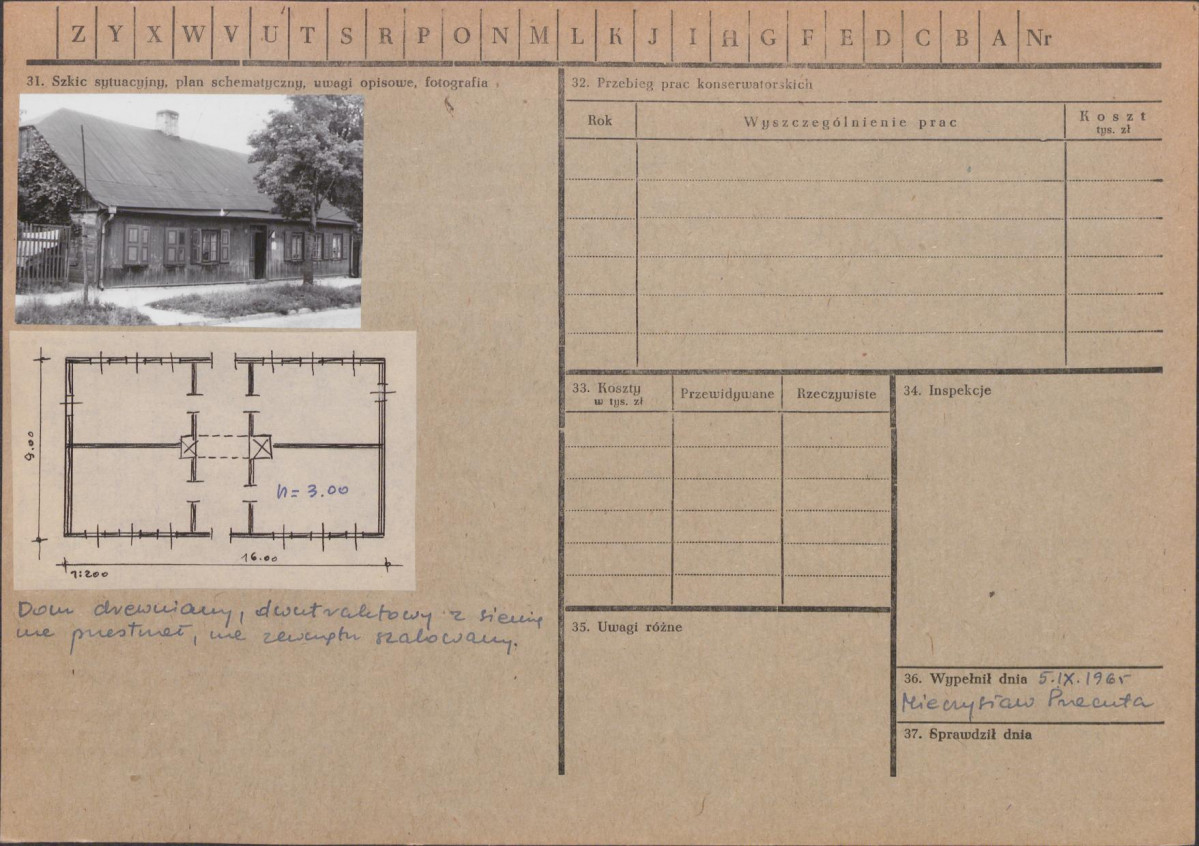 Z Y X W V U T S R P O N M L K J I H G F E D C B A Nr
31. Szkic sytuacyjny, plan schematyczny, uwagi opisowe, fotografia
9.00
h = 3.00
16.00
1:200
Dom drewniany, dwutraktowy z sienią
na przestrzał, na zewnątrz szalowany.
32. Przebieg prac konserwatorskich
Rok
Wyszczególnienie prac
Koszt
tys. zł
33. Koszty
w tys. zł
Przewidywane
Rzeczywiste
34. Inspekcje
35. Uwagi różne
36. Wypełnił dnia 5.IX.1965
Mieczysław
37. Sprawdził dnia